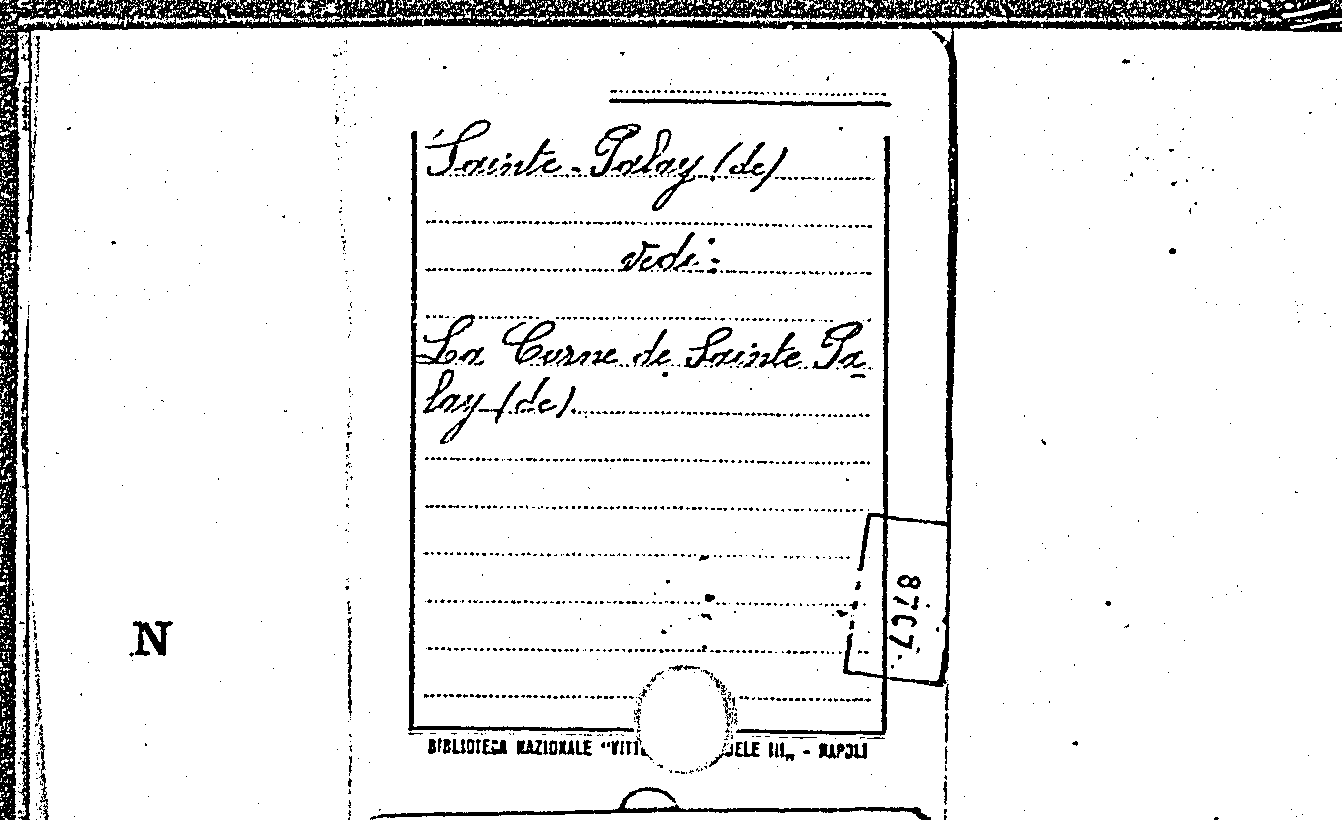 Sainte-Palay (de)
vedi:
La Curne de Sainte Pa-
lay (de)
8707.
N
BIBLIOTECA NAZIONALE "VITT ELE III„ - NAPOLI